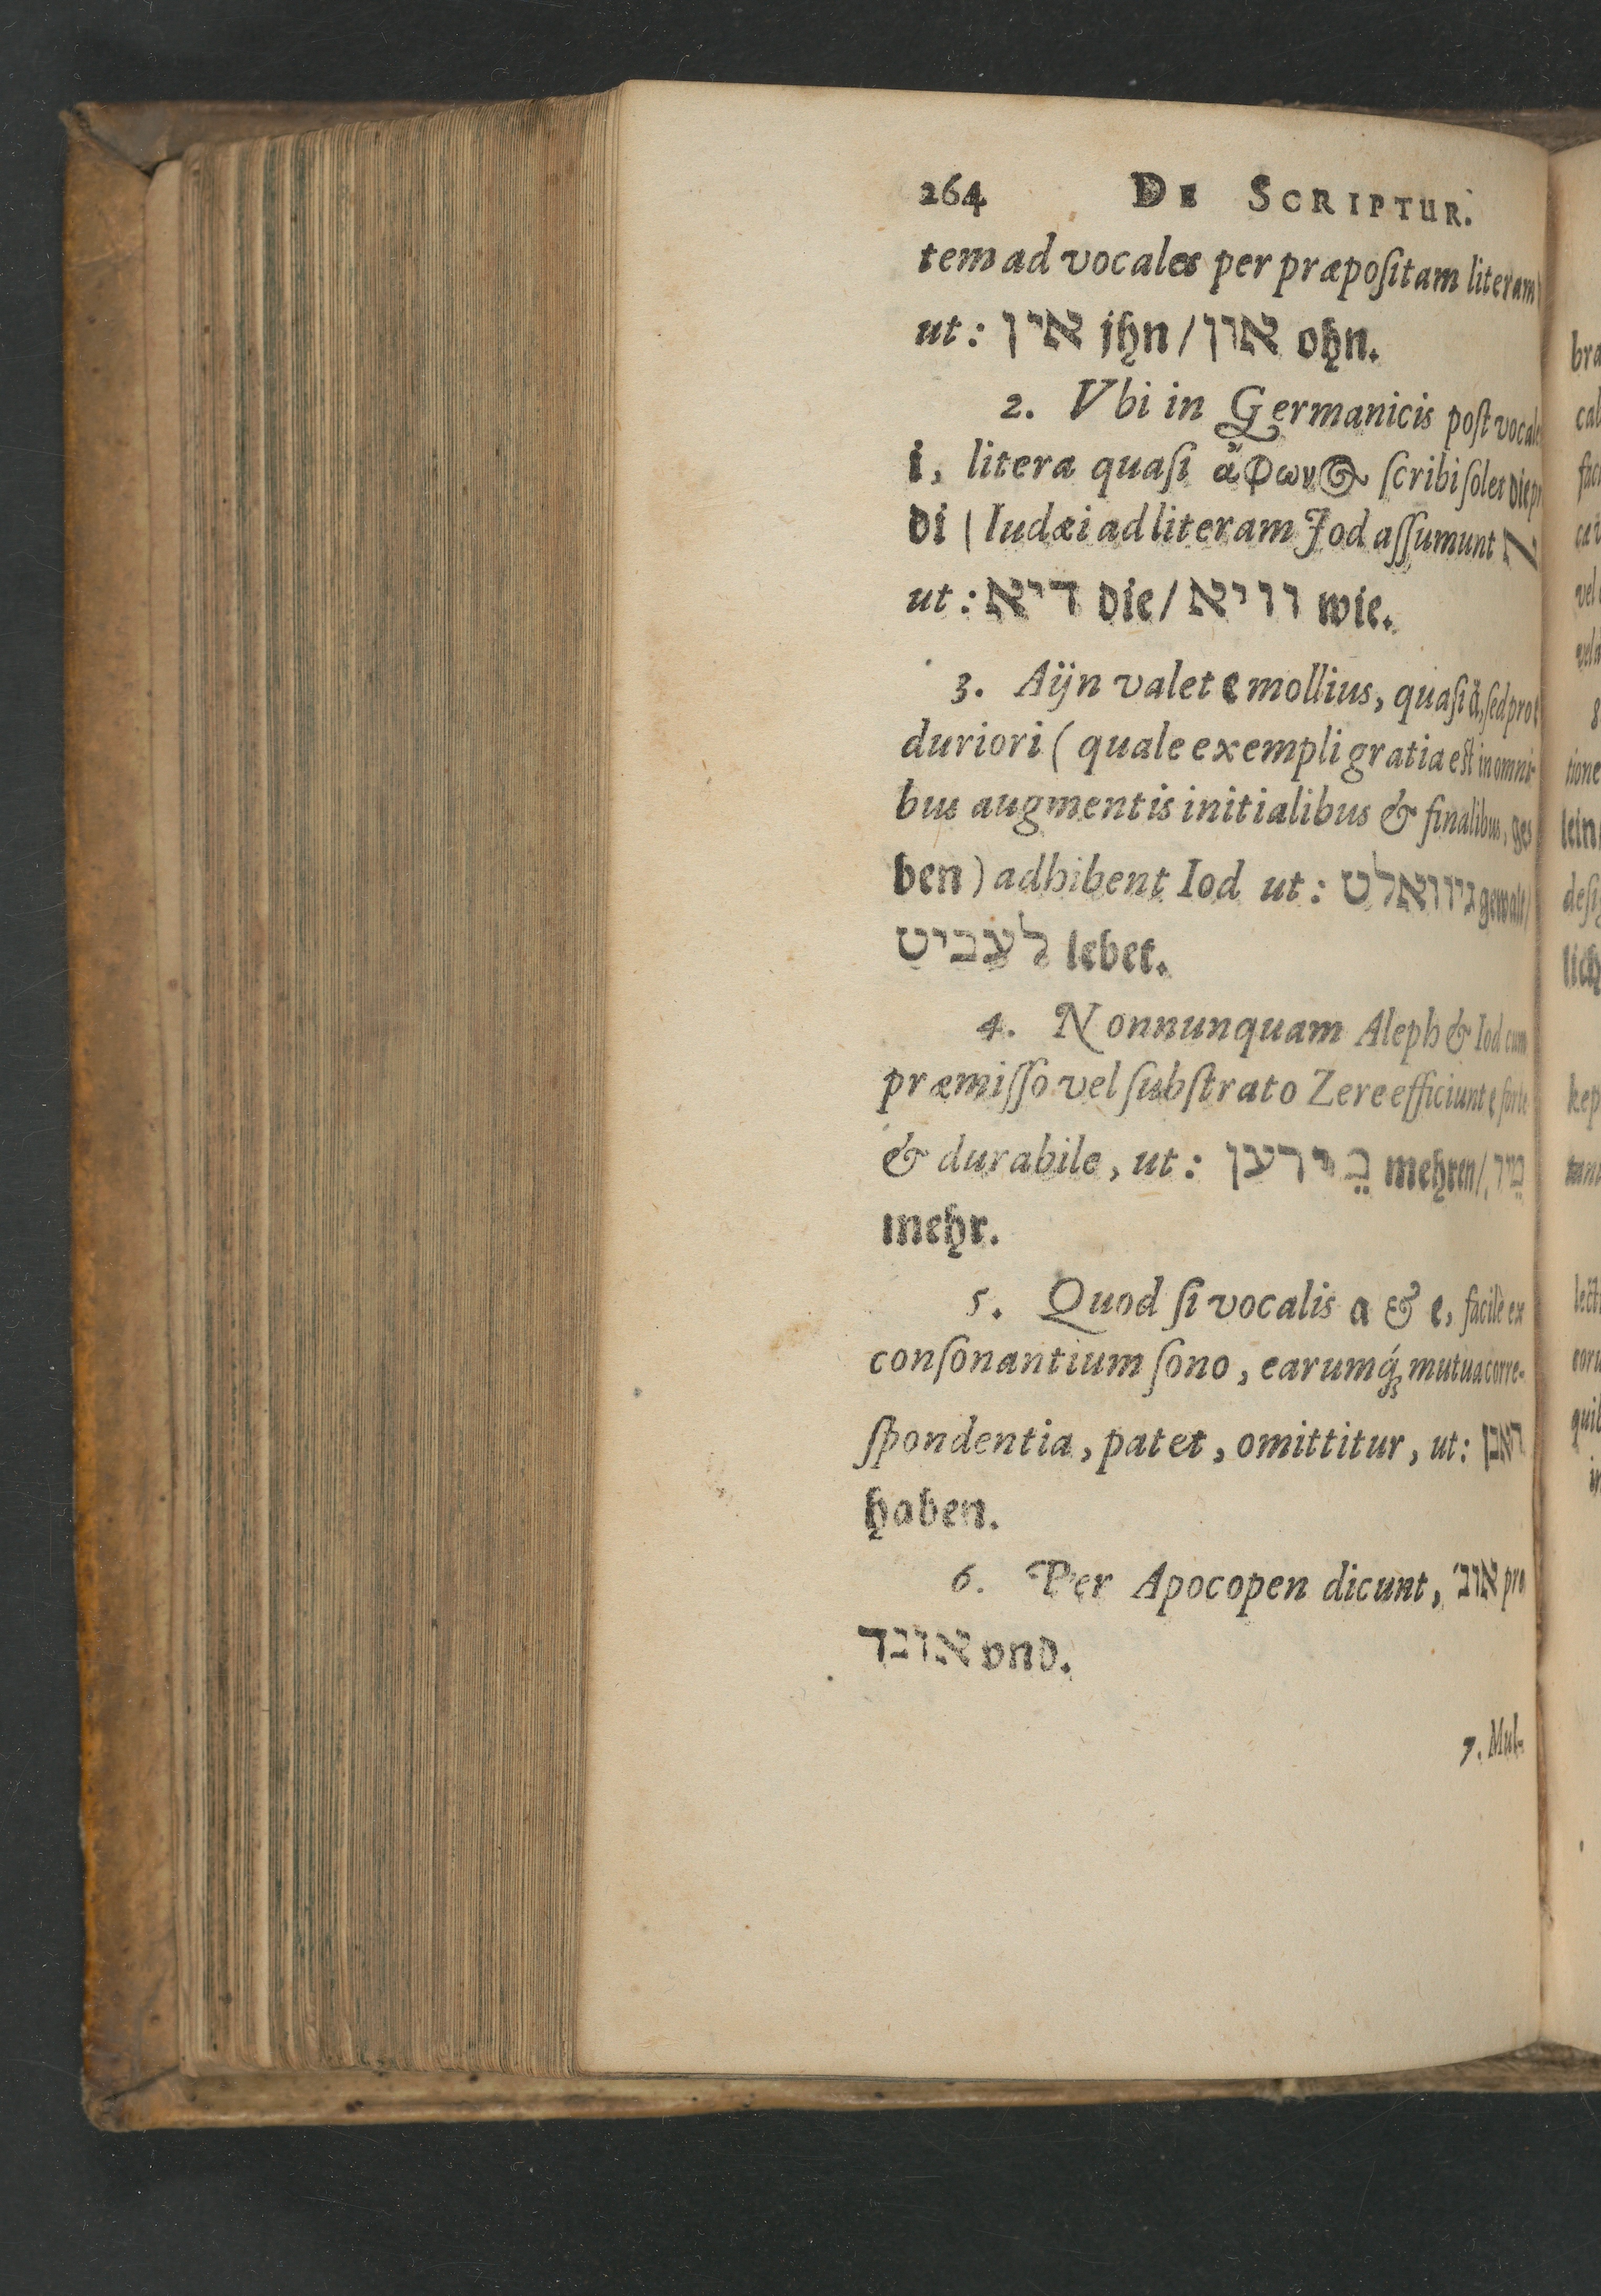 264 DE SCRIPTUR.
tem ad vocales per præpoſitam literam
ut: אין jhn / און ohn.
2. Vbi in Germanicis poſt vocale
i, litera quaſi ἄφων〈ος〉 ſcribi ſolet die pr
di ( Iudæi ad literam Jod aſſumunt א
ut: דיא die / וויא wie.
3. Aijn valet e mollius, quaſi å, ſed pro e
duriori ( quale exempli gratia eſt in omni-
bus augmentis initialibus & finalibus, ge⸗
ben ) adhibent Iod ut: גיוואלט gewalt /
לעביט lebet.
4. Nonnunquam Aleph & Iod cum
præmiſſo vel ſubſtrato Zere efficiunt e forte
& durabile, ut: מֵירען mehren / מֵיר
mehr.
5. Quod ſi vocalis a & e, facilè ex
conſonantium ſono, earumq́; mutua corre-
ſpondentia, patet, omittitur, ut: האבן
haben.
6. Per Apocopen dicunt, אונ׳ pro
אונד vnd.
7. Mul-
bra
cal
vel
8
tione
lein
deſi
lich
kep